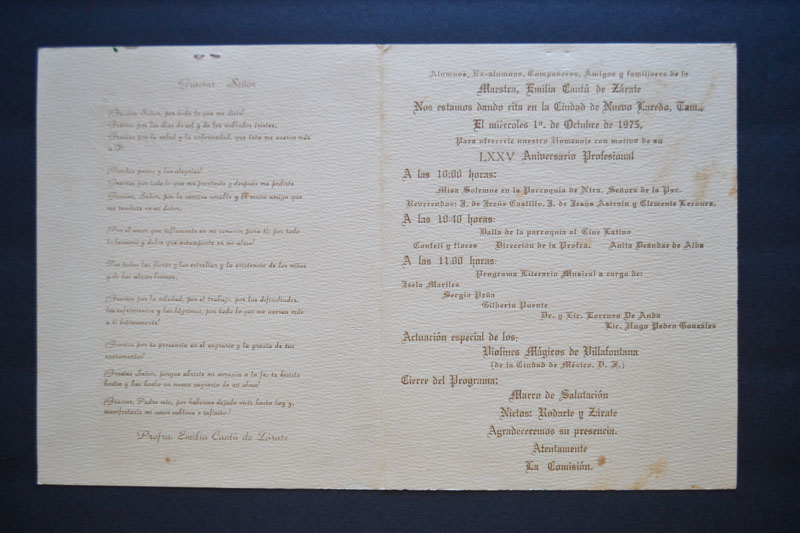 Gracias Señor
¡Gracias Señor, por todo lo que me diste!
Gracias por los días de sol y de los nublados tristes,
Gracias por la salud y la enfermedad, que ésta me acerca más
a Ti
¡Por las penas y las alegrías!
Gracias por todo lo que me prestaste y después me pediste
Gracias, Señor, por la sonrisa amable y la mano amiga que
me tendiste en mi dolor.
¡Por el amor que inflamaste en mi corazón para ti; por todo
lo hermoso y dulce que estampaste en mi alma!
Por todas las flores y las estrellas y la existencia de los niños
y de las almas buenas,
¡Gracias por la soledad, por el trabajo, por las dificultades,
los sufrimientos y las lágrimas, por todo lo que me acerca más
a ti íntimamente!
¡Gracias por tu presencia en el sagrario y la gracia de tus
sacramentos!
¡Gracias Señor, porque abriste mi corazón a la fe; te hiciste
hostia y has hecho un nuevo sagrario de mi alma!
¡Gracias, Padre mío, por haberme dejado vivir hasta hoy y,
manifestarte mi amor sublime e infinito!
Profra. Emilia Cantú de Zárate
Alumnos, Ex-alumnos, Compañeros, Amigos y familiares de la
Maestra, Emilia Cantú de Zárate
Nos estamos dando cita en la Ciudad de Nuevo Laredo, Tam.,
El miércoles 1º. de Octubre de 1975,
Para ofrecerle nuestro Homenaje con motivo de su
LXXV Aniversario Profesional
A las 10:00 horas:
Misa Solemne en la Parroquia de Ntra. Señora de la Paz.
Reverendos: J. de Jesús Castillo, J. de Jesús Astrain y Clemente Lecours.
A las 10:40 horas:
Valla de la parroquia al Cine Latino
Confeti y flores Dirección de la Profra. Anita Deándar de Alba
A las 11:00 horas:
Programa Literario Musical a cargo de:
Isela Mariles
Sergio Peña
Gilberto Puente
Dr. y Lic. Lorenzo De Anda
Lic. Hugo Pedro González
Actuación especial de los:
Violines Mágicos de Villafontana
(de la Ciudad de México, D. F.)
Cierre del Programa:
Marco de Salutación
Nietos: Rodarte y Zárate
Agradeceremos su presencia.
Atentamente
La Comisión.